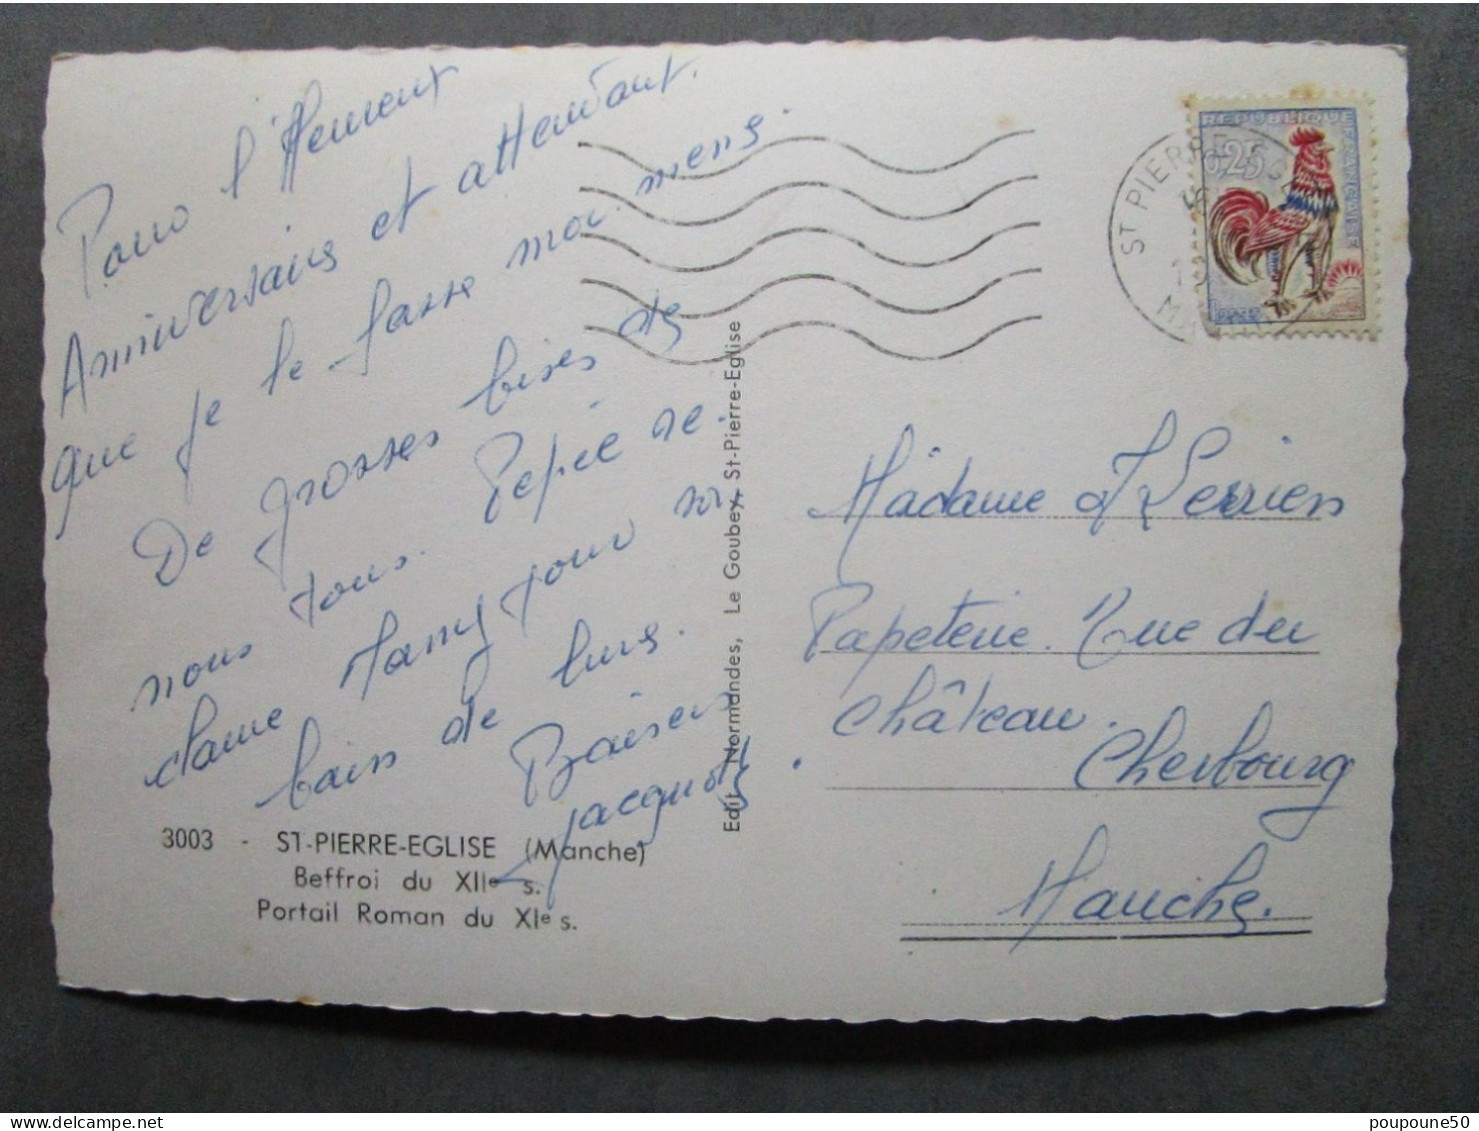 Pour l'
Anniversaire et attendant
que je le fasse moi mens.
De grosses bises de
nous tous. Pepée ré.
clame Jamy pour son
bain de lune.
Baisers
Jacquotte.
3003 - ST-PIERRE-EGLISE (Manche)
Beffroi du XIIe s.
Portail Roman du XIe s.
Edit. Normandes, Le Goubey, St-Pierre-Eglise
ST PIERRE
REPUBLIQUE FRANCAISE
0,25
Madame
Papeterie. Rue du
Château.
Cherbourg
Manche.
poupoune50